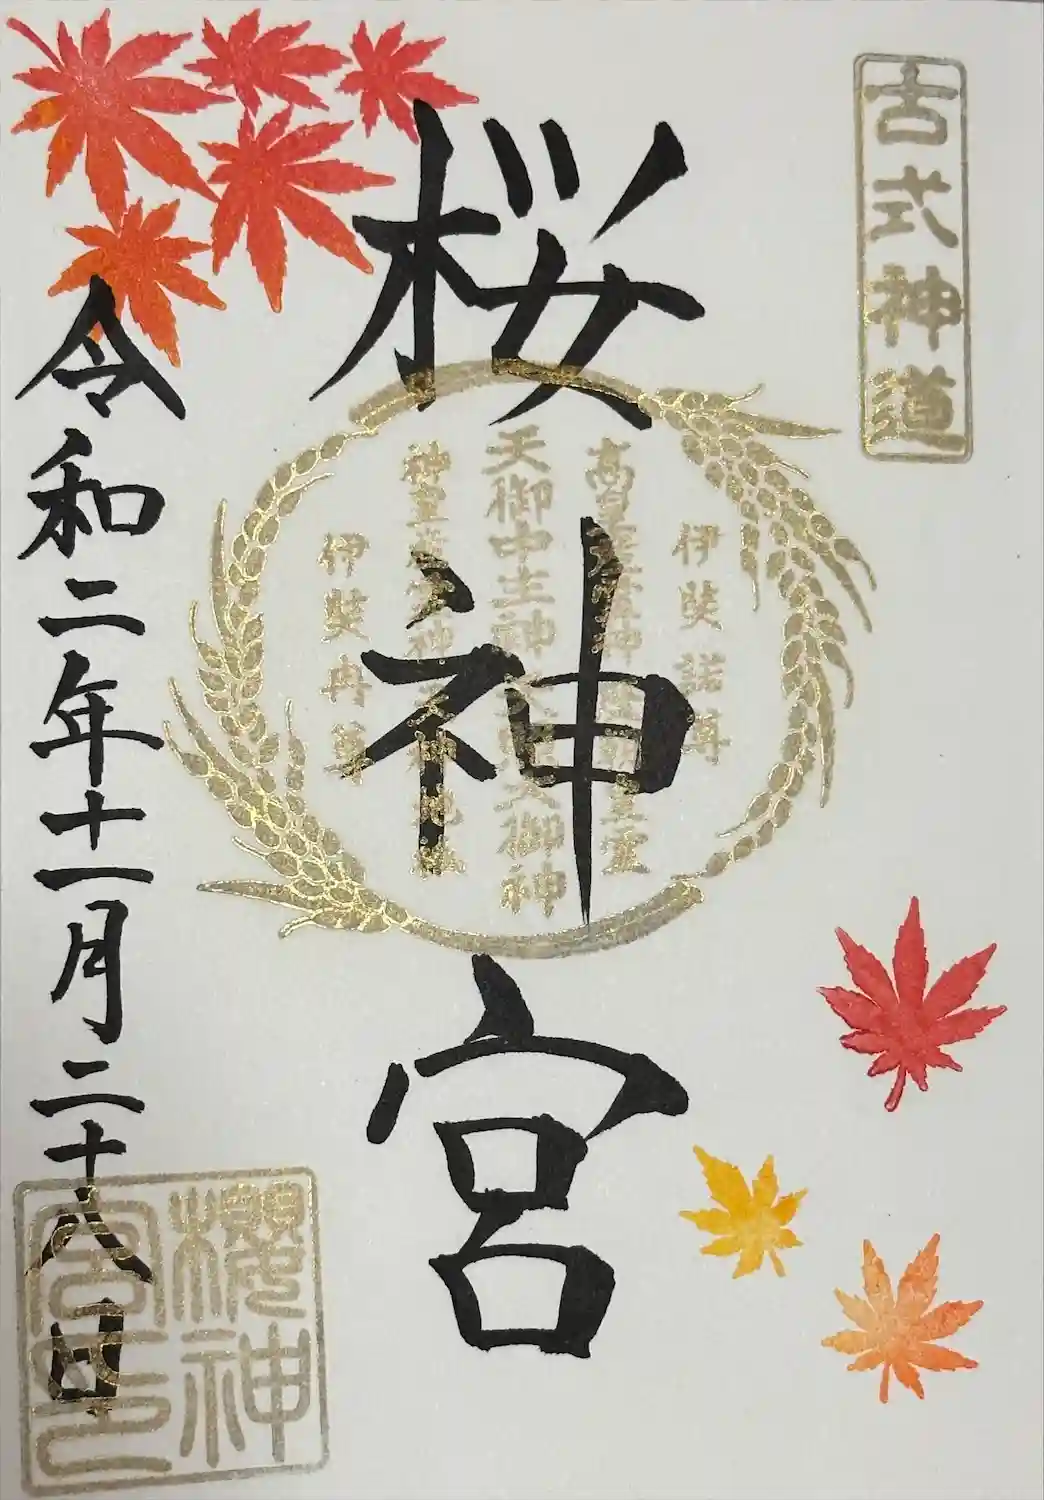 古式神道
桜神宮
伊奘諾尊
高皇産霊神 歴朝皇霊
天御中主神 天照大御神
神皇産霊神 天神地祇
伊奘冉尊
令和二年十一月二十八日
櫻神
宮印